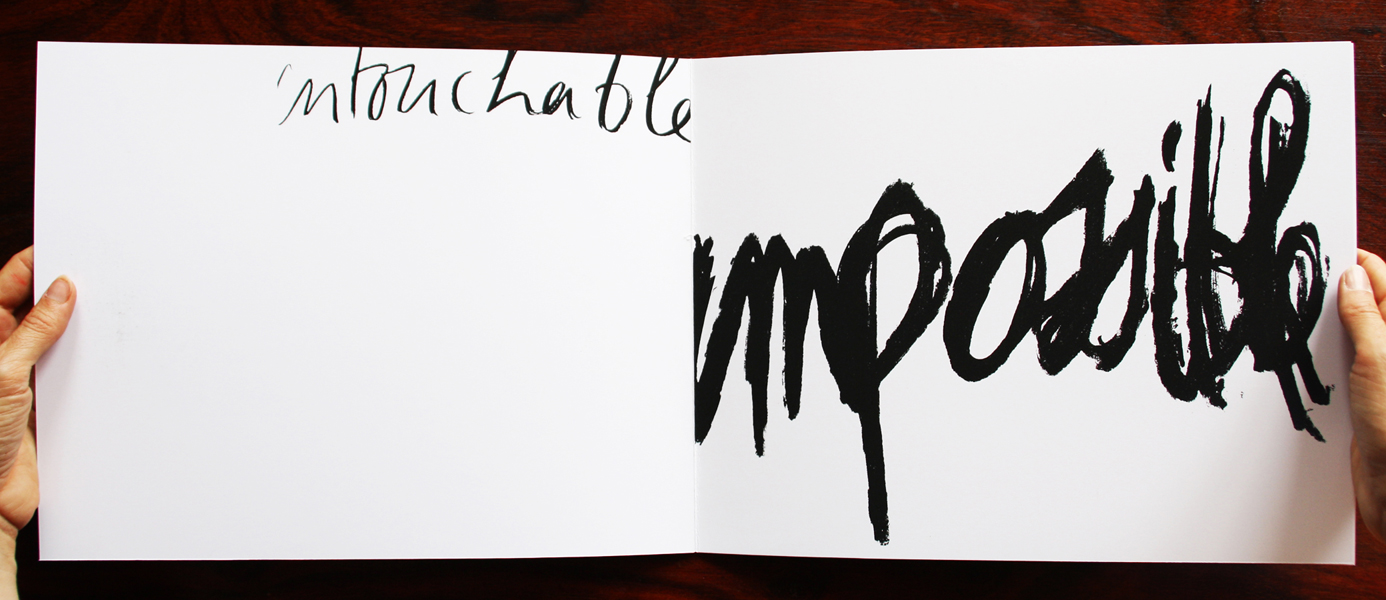 intouchable
impossible